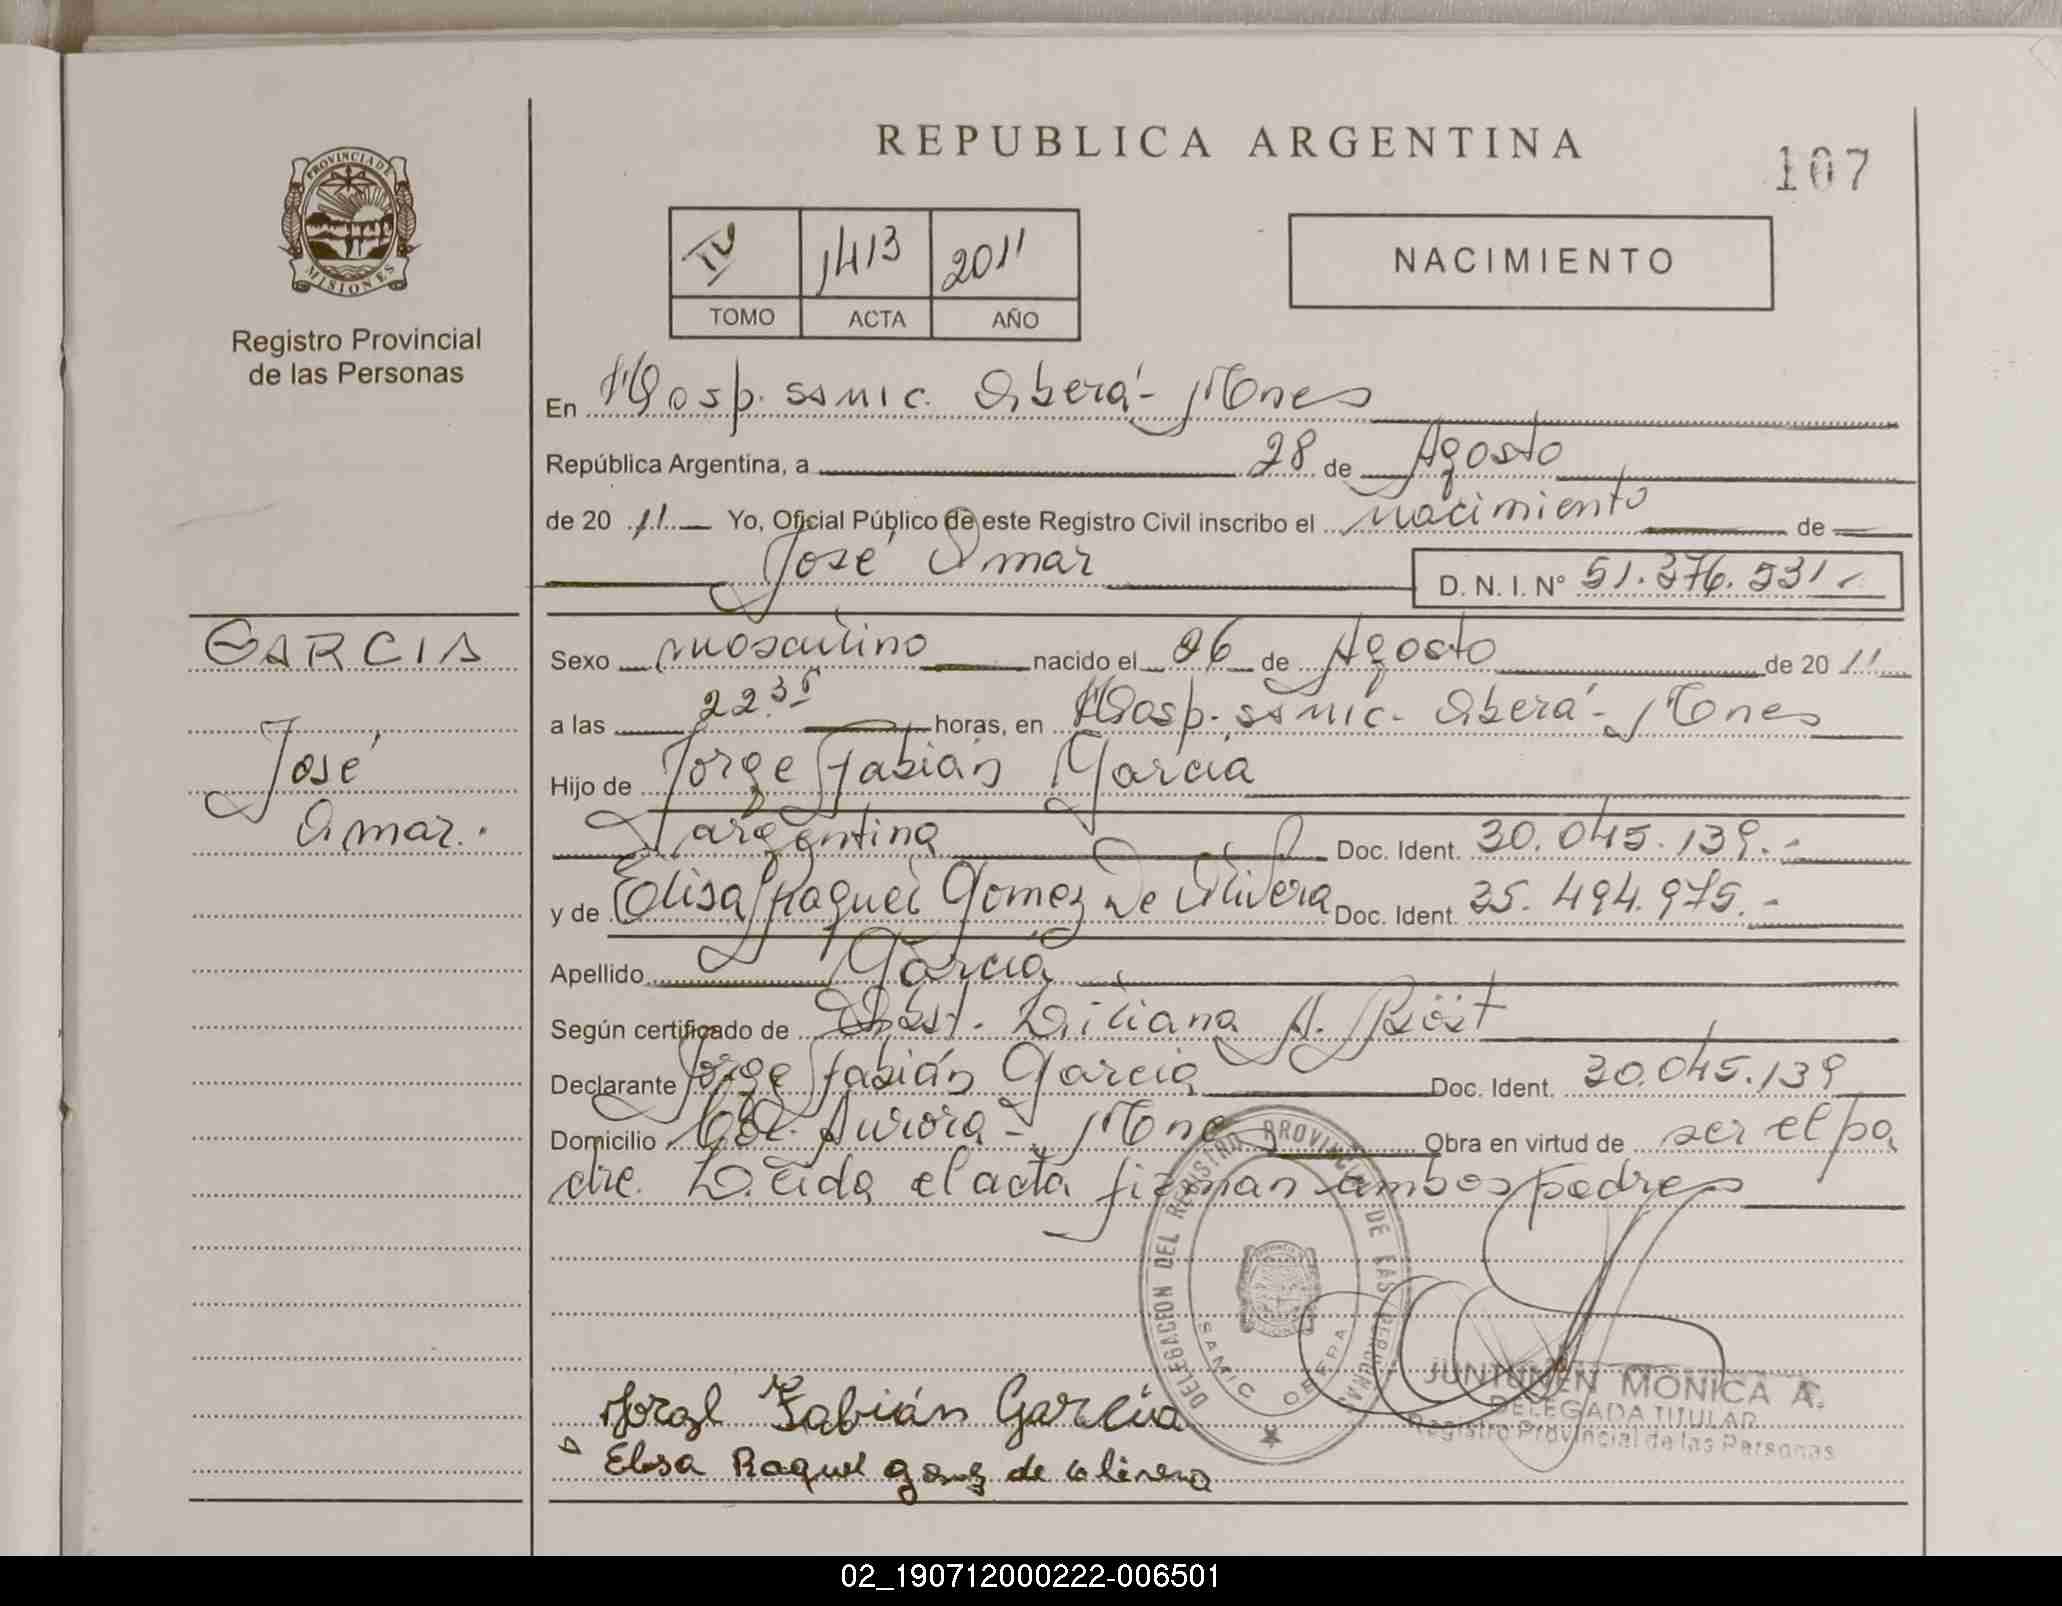 REPUBLICA ARGENTINA
107
PROVINCIA DE
MISIONES
Registro Provincial
de las Personas
IV 1413 2011
TOMO ACTA AÑO
NACIMIENTO
En Hosp. ssmic. Oberá - Mnes
República Argentina, a 28 de Agosto
de 20 11 Yo, Oficial Público de este Registro Civil inscribo el nacimiento de
José Omar D. N. I. N° 51.376.531
GARCIA
José
Omar.
Sexo masculino nacido el 26 de Agosto de 20 11
a las 22.35 horas, en Hosp. ssmic. Oberá - Mnes
Hijo de Jorge Fabián García
argentina Doc. Ident. 30.045.139.-
y de Elisa Raquel Gomez De Olivera Doc. Ident. 35.494.975.-
Apellido García
Según certificado de Obst. Liliana A.
Declarante Jorge Fabián García Doc. Ident. 30.045.139
Domicilio Col. Aurora - Mnes Obra en virtud de ser el pa
dre. Leida el acta firman ambos padres
DELEGACION DEL REGISTRO PROVINCIAL DE LAS PERSONAS
SAMIC OBERA
Jorge Fabián García
Elisa Raquel gomez de olivera
JUNTUNEN MONICA A.
DELEGADA TITULAR
Registro Provincial de las Personas
02_190712000222-006501